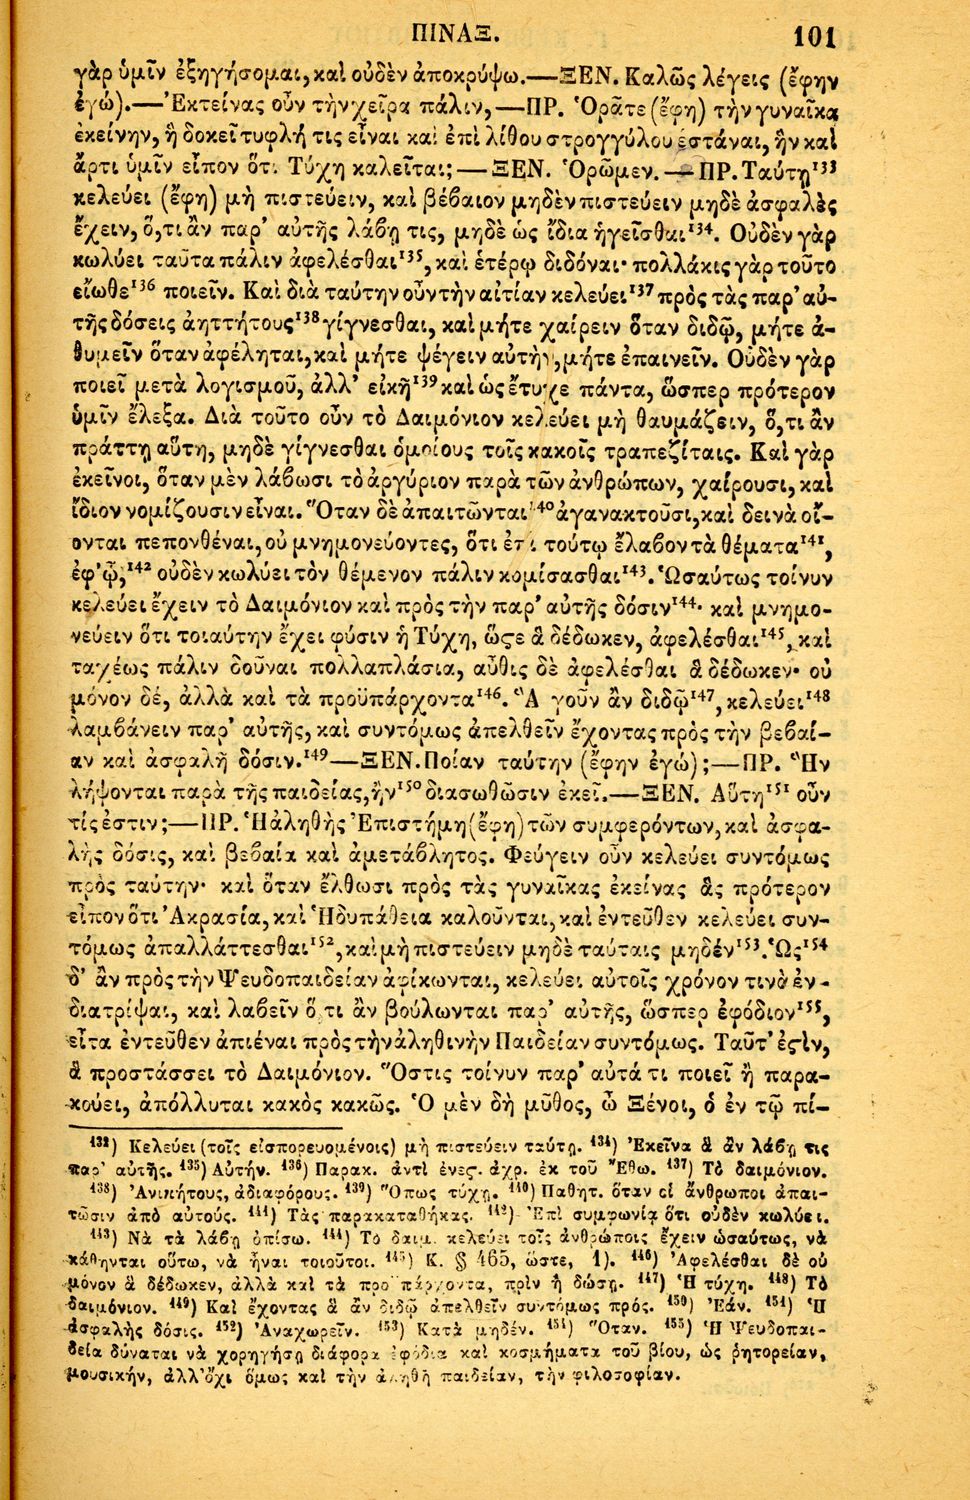 ΠΙΝΑΞ. 101
γὰρ ὑμῖν ἐξηγήσομαι, καὶ οὐδὲν ἀποκρύψω.—ΞΕΝ. Καλῶς λέγεις (ἔφην
ἐγώ).—Ἐκτείνας οὖν τὴν χεῖρα πάλιν,—ΠΡ. Ὁρᾶτε (ἔφη) τὴν γυναῖκα
ἐκείνην, ἣ δοκεῖ τυφλή τις εἶναι καὶ ἐπὶ λίθου στρογγύλου ἑστάναι, ἣν καὶ
ἄρτι ὑμῖν εἶπον ὅτι Τύχη καλεῖται;—ΞΕΝ. Ὁρῶμεν.—ΠΡ. Ταύτῃ¹³³
κελεύει (ἔφη) μὴ πιστεύειν, καὶ βέβαιον μηδὲν πιστεύειν μηδὲ ἀσφαλὲς
ἔχειν, ὅ,τι ἂν παρ' αὐτῆς λάβῃ τις, μηδὲ ὡς ἴδια ἡγεῖσθαι¹³⁴. Οὐδὲν γὰρ
κωλύει ταῦτα πάλιν ἀφελέσθαι¹³⁵, καὶ ἑτέρῳ διδόναι· πολλάκις γὰρ τοῦτο
εἴωθε¹³⁶ ποιεῖν. Καὶ διὰ ταύτην οὖν τὴν αἰτίαν κελεύει¹³⁷ πρὸς τὰς παρ' αὐ-
τῆς δόσεις ἀηττήτους¹³⁸ γίγνεσθαι, καὶ μήτε χαίρειν ὅταν διδῷ, μήτε ἀ-
θυμεῖν ὅταν ἀφέληται, καὶ μήτε ψέγειν αὐτὴν, μήτε ἐπαινεῖν. Οὐδὲν γὰρ
ποιεῖ μετὰ λογισμοῦ, ἀλλ' εἰκῆ¹³⁹ καὶ ὡς ἔτυχε πάντα, ὥσπερ πρότερον
ὑμῖν ἔλεξα. Διὰ τοῦτο οὖν τὸ Δαιμόνιον κελεύει μὴ θαυμάζειν, ὅ,τι ἂν
πράττῃ αὕτη, μηδὲ γίγνεσθαι ὁμοίους τοῖς κακοῖς τραπεζίταις. Καὶ γὰρ
ἐκεῖνοι, ὅταν μὲν λάβωσι τὸ ἀργύριον παρὰ τῶν ἀνθρώπων, χαίρουσι, καὶ
ἴδιον νομίζουσιν εἶναι. Ὅταν δὲ ἀπαιτῶνται¹⁴⁰ ἀγανακτοῦσι, καὶ δεινὰ οἴ-
ονται πεπονθέναι, οὐ μνημονεύοντες, ὅτι ἐπὶ τούτῳ ἔλαβον τὰ θέματα¹⁴¹,
ἐφ' ᾧ,¹⁴² οὐδὲν κωλύει τὸν θέμενον πάλιν κομίσασθαι¹⁴³. Ὡσαύτως τοίνυν
κελεύει ἔχειν τὸ Δαιμόνιον καὶ πρὸς τὴν παρ' αὐτῆς δόσιν¹⁴⁴· καὶ μνημο-
νεύειν ὅτι τοιαύτην ἔχει φύσιν ἡ Τύχη, ὥϛε ἃ δέδωκεν, ἀφελέσθαι¹⁴⁵, καὶ
ταχέως πάλιν δοῦναι πολλαπλάσια, αὖθις δὲ ἀφελέσθαι ἃ δέδωκεν· οὐ
μόνον δέ, ἀλλὰ καὶ τὰ προϋπάρχοντα¹⁴⁶. Ἃ γοῦν ἂν διδῷ¹⁴⁷, κελεύει¹⁴⁸
λαμβάνειν παρ' αὐτῆς, καὶ συντόμως ἀπελθεῖν ἔχοντας πρὸς τὴν βεβαί-
αν καὶ ἀσφαλῆ δόσιν.¹⁴⁹—ΞΕΝ. Ποίαν ταύτην (ἔφην ἐγώ);—ΠΡ. Ἣν
λήψονται παρὰ τῆς παιδείας, ἢν¹⁵⁰ διασωθῶσιν ἐκεῖ.—ΞΕΝ. Αὕτη¹⁵¹ οὖν
τίς ἐστιν;—ΠΡ. Ἡ ἀληθὴς Ἐπιστήμη (ἔφη) τῶν συμφερόντων, καὶ ἀσφα-
λὴς δόσις, καὶ βεβαία καὶ ἀμετάβλητος. Φεύγειν οὖν κελεύει συντόμως
πρὸς ταύτην· καὶ ὅταν ἔλθωσι πρὸς τὰς γυναῖκας ἐκείνας ἃς πρότερον
εἶπον ὅτι Ἀκρασία, καὶ Ἡδυπάθεια καλοῦνται, καὶ ἐντεῦθεν κελεύει συν-
τόμως ἀπαλλάττεσθαι¹⁵², καὶ μὴ πιστεύειν μηδὲ ταύταις μηδέν¹⁵³. Ὡς¹⁵⁴
δ' ἂν πρὸς τὴν Ψευδοπαιδείαν ἀφίκωνται, κελεύει αὐτοῖς χρόνον τινὰ ἐν-
διατρίψαι, καὶ λαβεῖν ὅ,τι ἂν βούλωνται παρ' αὐτῆς, ὥσπερ ἐφόδιον¹⁵⁵,
εἶτα ἐντεῦθεν ἀπιέναι πρὸς τὴν ἀληθινὴν Παιδείαν συντόμως. Ταῦτ' ἐϛὶν,
ἃ προστάσσει τὸ Δαιμόνιον. Ὅστις τοίνυν παρ' αὐτά τι ποιεῖ ἢ παρα-
κούει, ἀπόλλυται κακὸς κακῶς. Ὁ μὲν δὴ μῦθος, ὦ Ξένοι, ὁ ἐν τῷ πί-
¹³³) Κελεύει (τοῖς εἰσπορευομένοις) μὴ πιστεύειν ταύτῃ. ¹³⁴) Ἐκεῖνα ἃ ἂν λάβῃ τις
παρ' αὐτῆς. ¹³⁵) Αὐτήν. ¹³⁶) Παρακ. ἀντὶ ἐνεϛ. ἀχρ. ἐκ τοῦ Ἔθω. ¹³⁷) Τὸ δαιμόνιον.
¹³⁸) Ἀνικήτους, ἀδιαφόρους. ¹³⁹) Ὅπως τύχῃ. ¹⁴⁰) Παθητ. ὅταν οἱ ἄνθρωποι ἀπαι-
τῶσιν ἀπὸ αὐτούς. ¹⁴¹) Τὰς παρακαταθήκας. ¹⁴²) Ἐπὶ συμφωνίᾳ ὅτι οὐδὲν κωλύει.
¹⁴³) Νὰ τὰ λάβῃ ὀπίσω. ¹⁴⁴) Τὸ δαιμ. κελεύει τοῖς ἀνθρώποις ἔχειν ὡσαύτως, νὰ
κάθηνται οὕτω, νὰ ἦναι τοιοῦτοι. ¹⁴⁵) Κ. § 465, ὥστε, 1). ¹⁴⁶) Ἀφελέσθαι δὲ οὐ
μόνον ἃ δέδωκεν, ἀλλὰ καὶ τὰ προϋπάρχοντα, πρὶν ἢ δώσῃ. ¹⁴⁷) Ἡ τύχη. ¹⁴⁸) Τὸ
δαιμόνιον. ¹⁴⁹) Καὶ ἔχοντας ἃ ἂν διδῷ ἀπελθεῖν συντόμως πρός. ¹⁵⁰) Ἐάν. ¹⁵¹) Ἡ
ἀσφαλὴς δόσις. ¹⁵²) Ἀναχωρεῖν. ¹⁵³) Κατὰ μηδέν. ¹⁵⁴) Ὅταν. ¹⁵⁵) Ἡ Ψευδοπαι-
δεία δύναται νὰ χορηγήσῃ διάφορα ἐφόδια καὶ κοσμήματα τοῦ βίου, ὡς ῥητορείαν,
μουσικήν, ἀλλ' ὄχι ὅμως καὶ τὴν ἀληθῆ παιδείαν, τὴν φιλοσοφίαν.